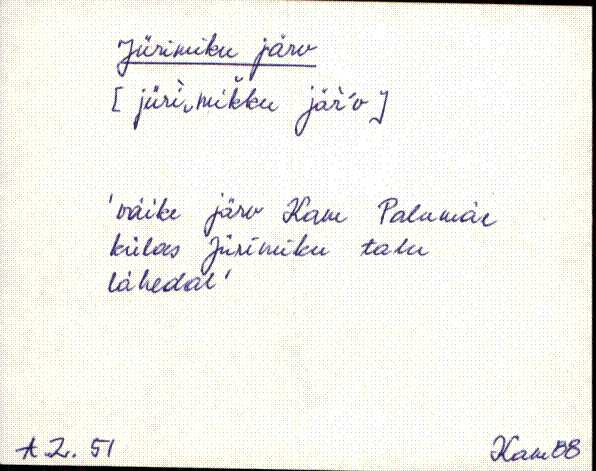 Jürimiku järv
[jüriˎmikku jäŕv]
'väike järv Kam Palumäe
külas Jürimiku talu
lähedal'
A.L. 51
Kam 88